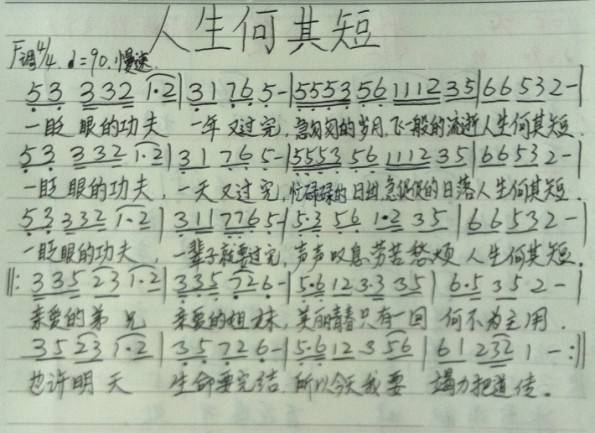 人生何其短
F调4/4 ♩=90.慢速
53 332 1·2|31 76 5-|5553 56 1112 35|66532-|
一眨眼的功夫 一年又过完,急匆匆的岁月,飞一般的流逝人生何其短.
53 332 1·2|31 76 5-|5553 56 1112 35|66532-|
一眨眼的功夫,一天又过完,忙碌碌的日出,急促促的日落人生何其短.
53 332 1·2|311 776 5-|5·3 56 1·2 35|66532-|
一眨眼的功夫,一辈子就要过完,声声叹息劳苦愁烦 人生何其短.
‖:335 23 1·2|335 726-|5·6 12 3·3 35|6·5 35 2-|
亲爱的弟兄 亲爱的姐妹,美丽青春只有一回 何不为主用.
35 23 1·2|35 726-|5·6 12 3 56|61 232 1-:‖
也许明天 生命要完结.所以今天我要 竭力把道传.